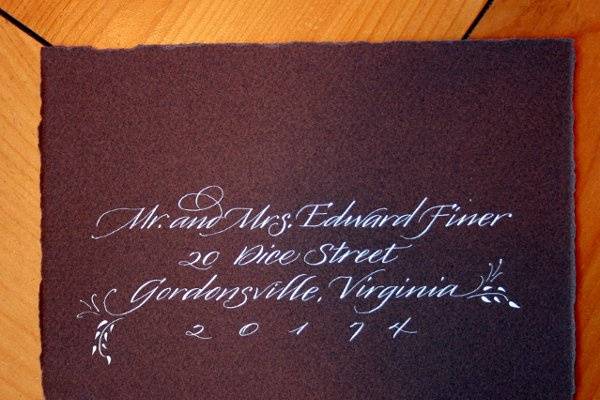 Mr. and Mrs. Edward Finer
20 Dice Street
Gordonsville, Virginia
20174